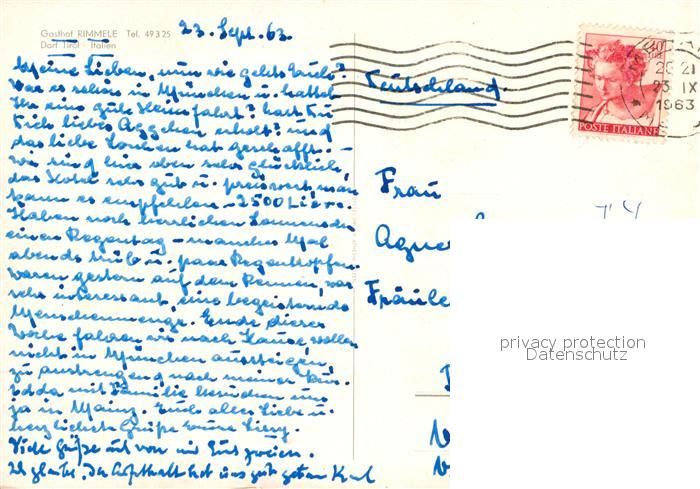 23. Sept. 63.
Gasthof RIMMELE Tel. 49325
Dorf Tirol - Italien
Meine Lieben, nun wie gehts Euch?
War es schön in München u. hattet
Ihr eine gute Heimfahrt? hast Du
Dich liebes Aggchen erholt? und
das liebe hat geschafft. -
wir sind hier oben sehr glücklich,
das Hotel sehr gut u. preiswert, man
kann es empfehlen - 2500 Lire.
Haben noch herrlichen Sonnenschein
einen Regentag - manches Mal
abends trüb u. paar Regentropfen
waren gestern auf dem Rennen, war
sehr interessant, eine begeisternde
Menschenmenge. Ende dieser
Woche fahren wir nach Hause, wollen
nicht in München aussteigen,
zu anstrengend nach meiner Kur.
mit Familie besuchen uns
ja in Mainz. Euch alles Liebe u.
herzlichste Grüße Eure
Viele Grüße auch von mir Euch zweien.
Ich glaube, der Aufenthalt hat uns gut getan Karl
Deutschland.
Frau
Fräule
POSTE ITALIANE
23 IX
1963
privacy protection
Datenschutz